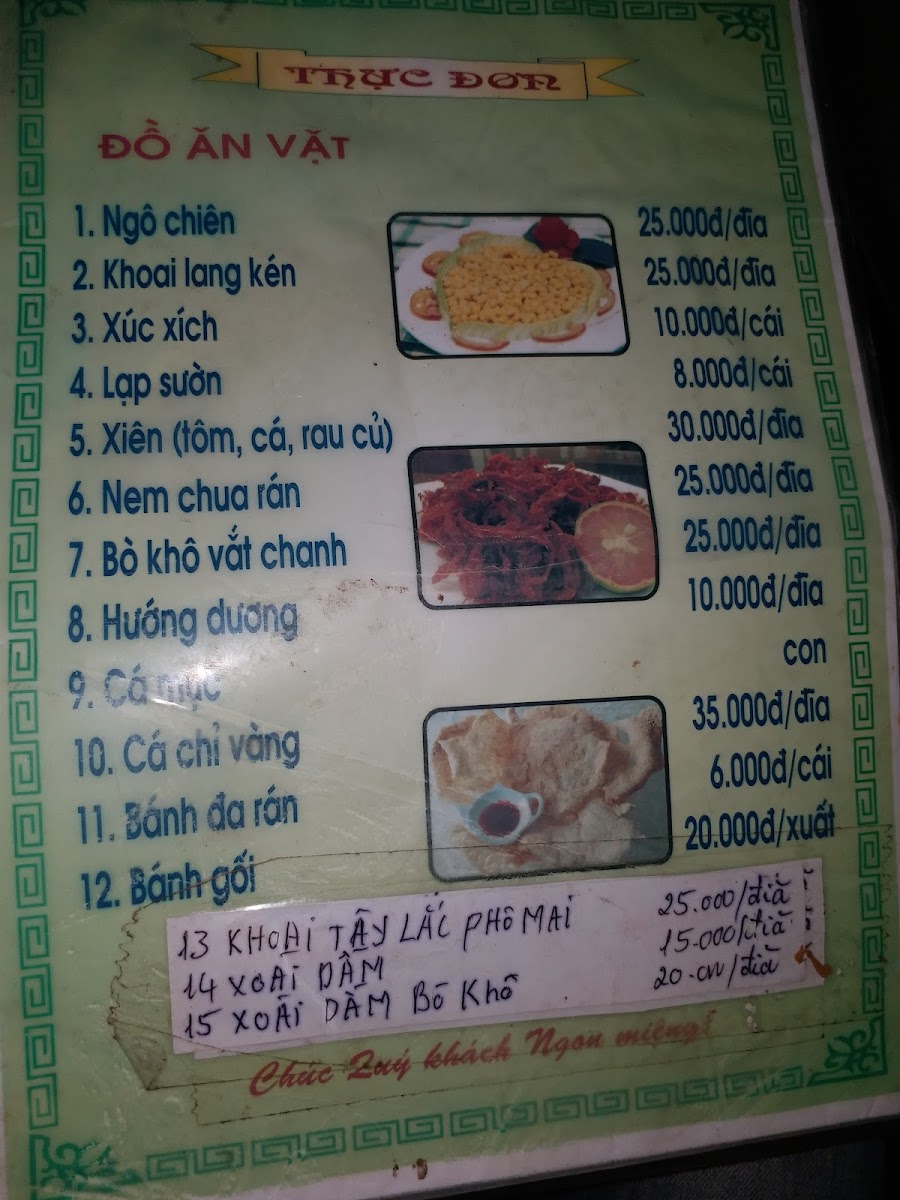 THỰC ĐƠN
ĐỒ ĂN VẶT
1. Ngô chiên 25.000đ/đĩa
2. Khoai lang kén 25.000đ/đĩa
3. Xúc xích 10.000đ/cái
4. Lạp sườn 8.000đ/cái
5. Xiên (tôm, cá, rau củ) 30.000đ/đĩa
6. Nem chua rán 25.000đ/đĩa
7. Bò khô vắt chanh 25.000đ/đĩa
8. Hướng dương 10.000đ/đĩa
9. Cá mực con
10. Cá chỉ vàng 35.000đ/đĩa
11. Bánh đa rán 6.000đ/cái
12. Bánh gối 20.000đ/xuất
13 KHOAI TÂY LẮC PHÔ MAI 25.000/đĩa
14 XOÀI DẦM 15.000/đĩa
15 XOÀI DẦM BÒ KHÔ /đĩa
Chúc Quý khách Ngon miệng!